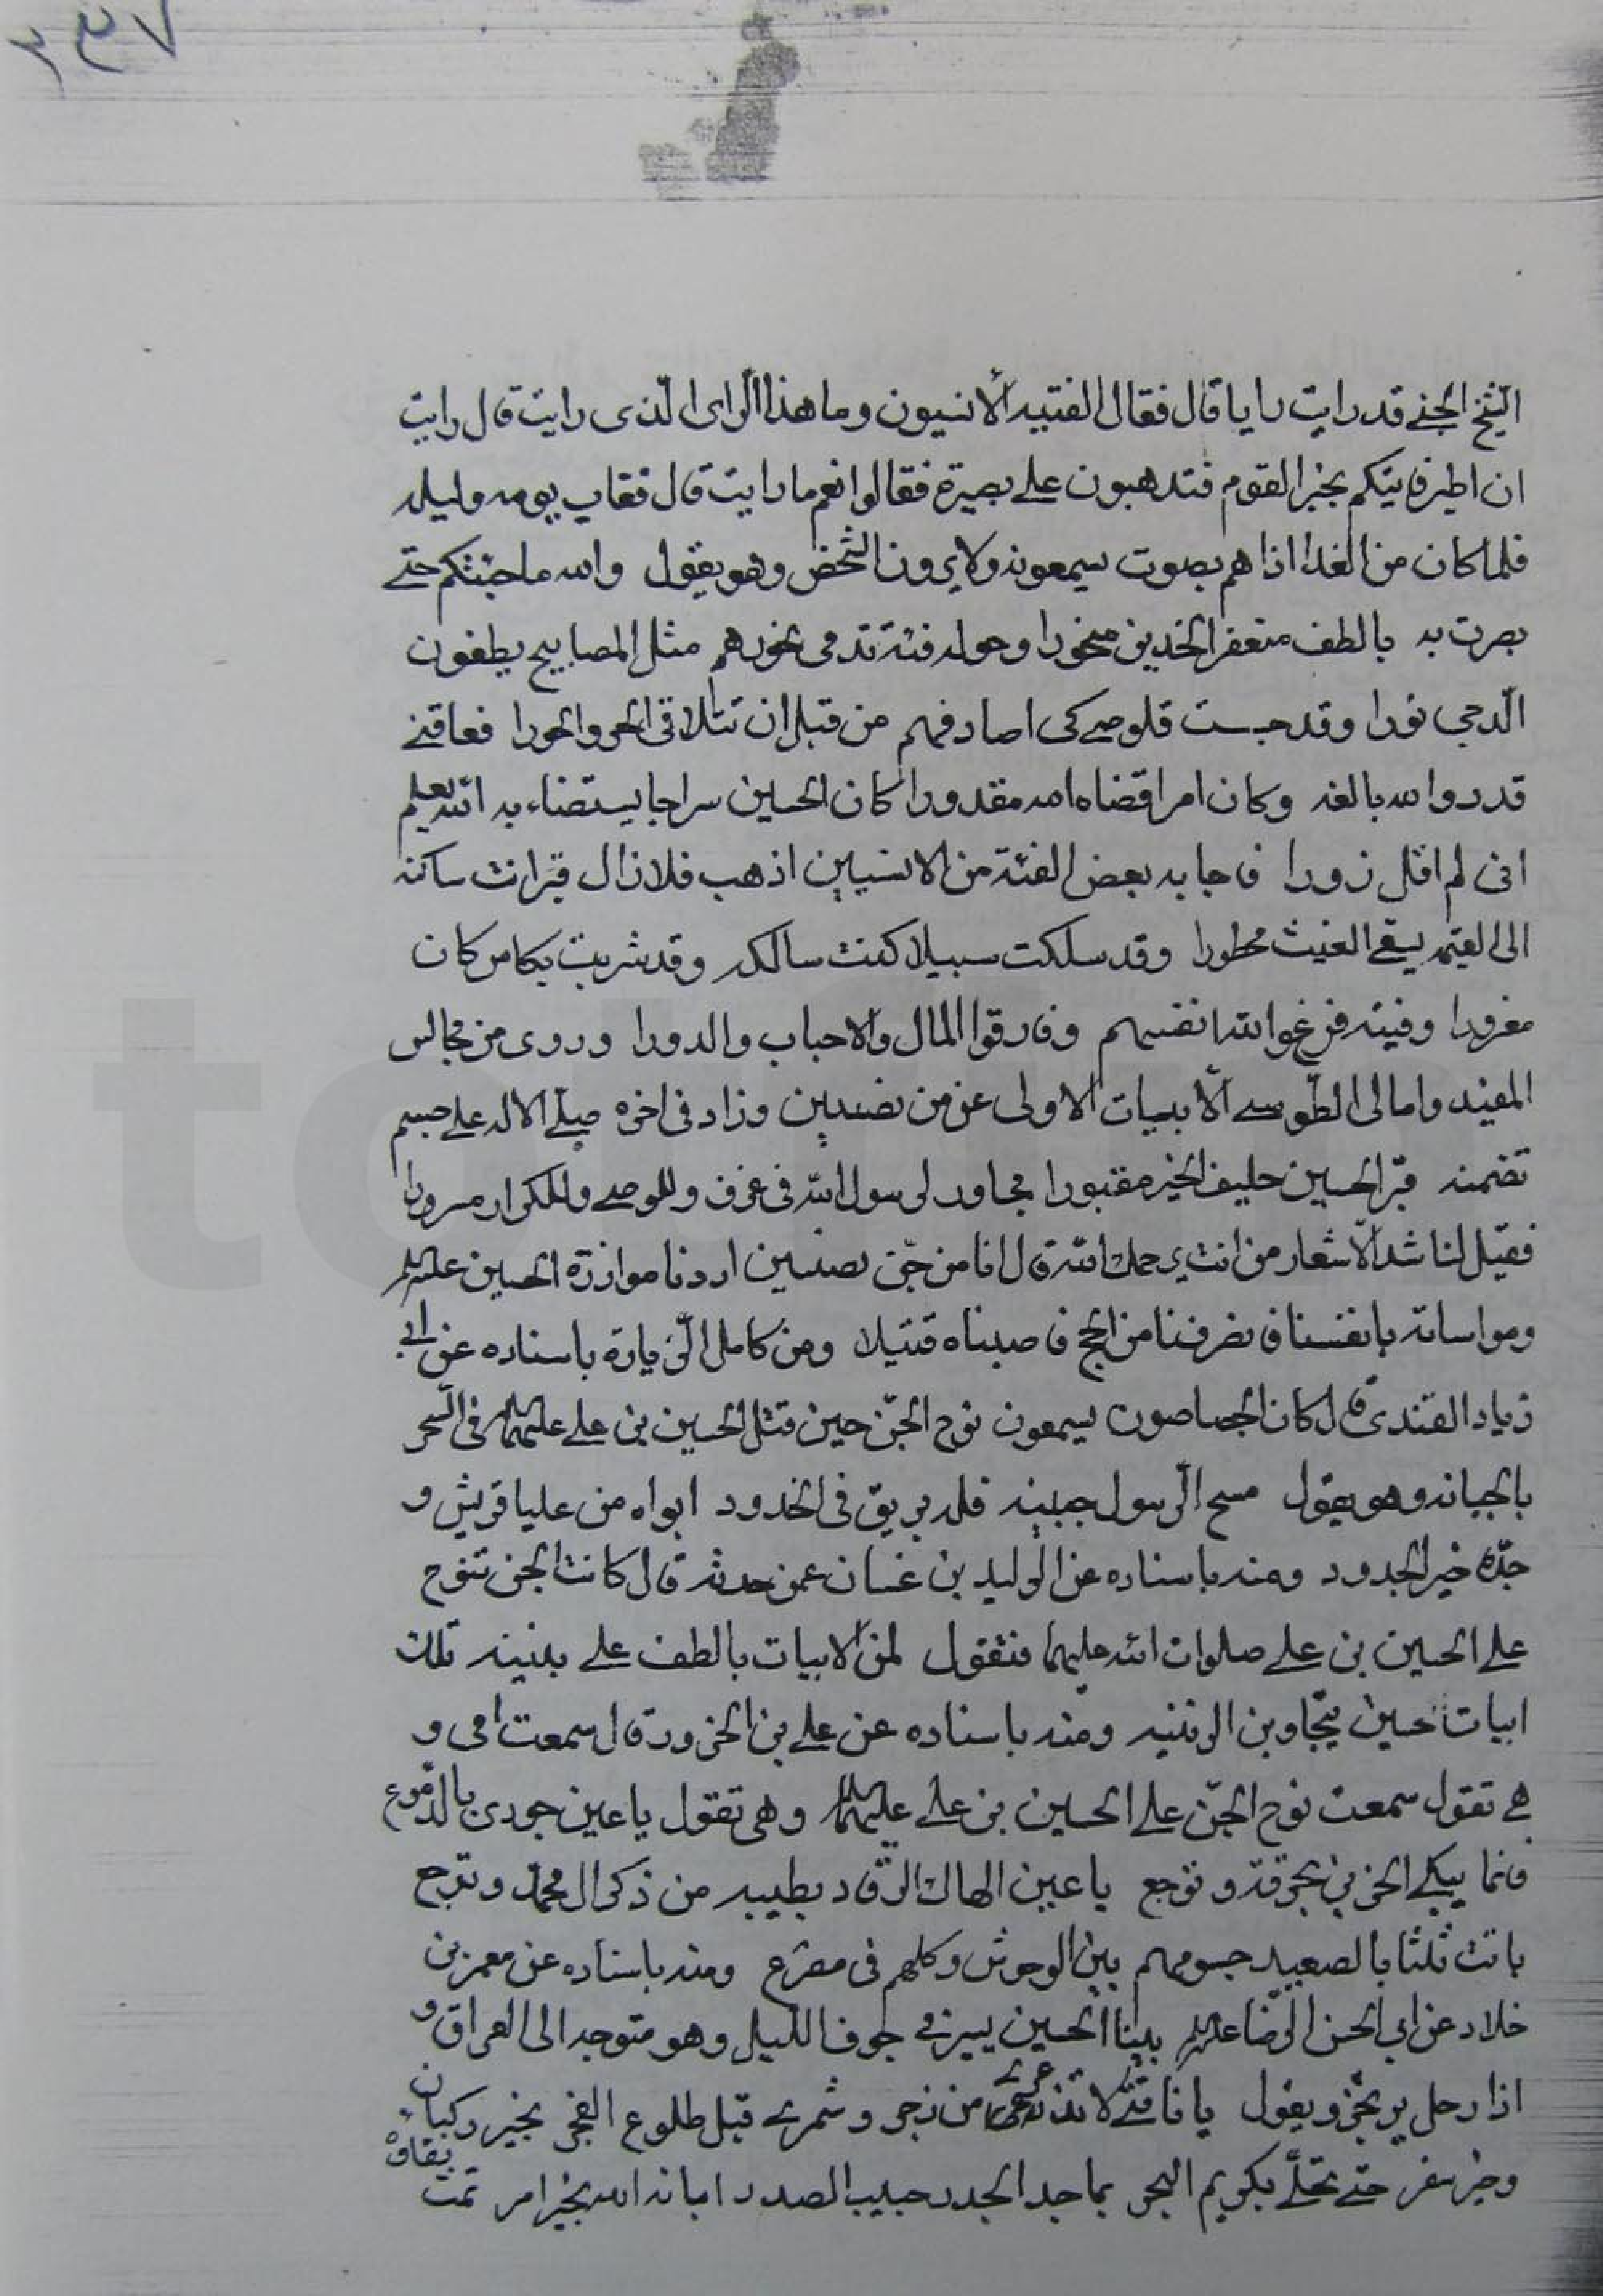 ٣٤٧
الشّيخ الجنے قد رايت رايا قال فقال الفتيه الأنسيون وما هذا الرّاى الّذى رايت قال رايت
ان اطير فاتيكم بخبر القوم فتذهبون على بصيرة فقالوا نعم ما رايت قال فغاب يومه وليله
فلما كان من الغد اذا هم بصوت يسمعونه ولا يرون الشّخص وهو يقول والله ما جئتكم حتے
بصرت به بالطف منعفر الخدين منحورا وحوله فتية تدمى نحورهم مثل المصابيح يطفون
الّدجى نورا وقد حبست قلوصے كى اصادفهم من قبل ان تتلاقى الحى والحورا فعاقنے
قدر والله بالغه وكان امرا قضاه الله مقدورا كان الحسين سراجا يستضاء به الله يعلم
انى لم اقل زورا فاجابه بعض الفئة من الانسيين اذهب فلا زال قبر انت ساكنه
الى القيمه يسقے الغيث ممطورا وقد سلكت سبيلا كنت سالكه وقد شربت بكاس كان
مغزورا وفتيه فرغوا لله انفسهم وفارقوا المال والاحباب والدورا وروى من مجالس
المفيد وامالى الطّوسے الأبيات الاولى عن من نصيبين وزاد فى اخره صلّے الاله على جسم
تضمنه قبر الحسين حليف الخير مقبورا مجاور لرسول الله فى غرف وللوصے وللكرار مسرورا
فقيل لناشد الأشعار من انت يرحمك الله قال انا من جنّ نصيبين اردنا موازرة الحسين عليه السلم
ومواساته بانفسنا فانصرفنا من الحج فاصبناه قتيلا ومن كامل الّزيارة باسناده عن ابى
زياد القندى قال كان الجصاصون يسمعون نوح الجنّ حين قتل الحسين بن على عليهما السلم فى السّحر
بالجبانه وهو يقول مسح الّرسول جبينه فله بريق فى الخدود ابواه من عليا قريش و
جدّه خير الجدود ومنه باسناده عن الوليد بن غسان عمن حدثه قال كانت الجن تنوح
على الحسين بن على صلوات الله عليهما فتقول لمن الابيات بالطف على بنينه تلك
ابيات حسين يتجاوبن الرنينه ومنه باسناده عن على بن الحزور قال سمعت امى و
هے تقول سمعت نوح الجنّ على الحسين بن على عليهما السلم وهى تقول يا عين جودى بالدّموع
فانما يبكى الحزين بحرقة وتوجع يا عين الهاك الرّقاد بطيبه من ذكر ال محمّد وترجع
باتت ثلثا بالصعيد جسومهم بين الوحوش وكلهم فى مصرع ومنه باسناده عن معمر بن
خلاد عن ابى الحسن الرّضا عليه السلم بينا الحسين يسير فى جوف الليل وهو متوجه الى العراق و
اذا رجل يرتجز ويقول يا ناقتے لا تذعرى من زجر وشمرے قبل طلوع الفجر بخير ركبان
وخير سفر حتے تحلّے بكريم النجر بماجد الجد رحيب الصدر ابانه الله بخير امر تمت
بقاه